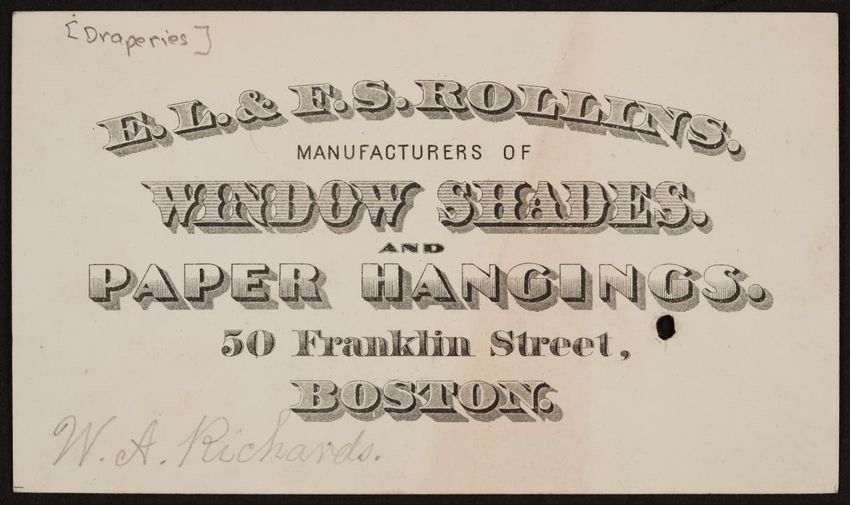 [Draperies]
E. L. & F. S. ROLLINS.
MANUFACTURERS OF
WINDOW SHADES.
AND
PAPER HANGINGS.
50 Franklin Street,
BOSTON.
W. A. Richards.